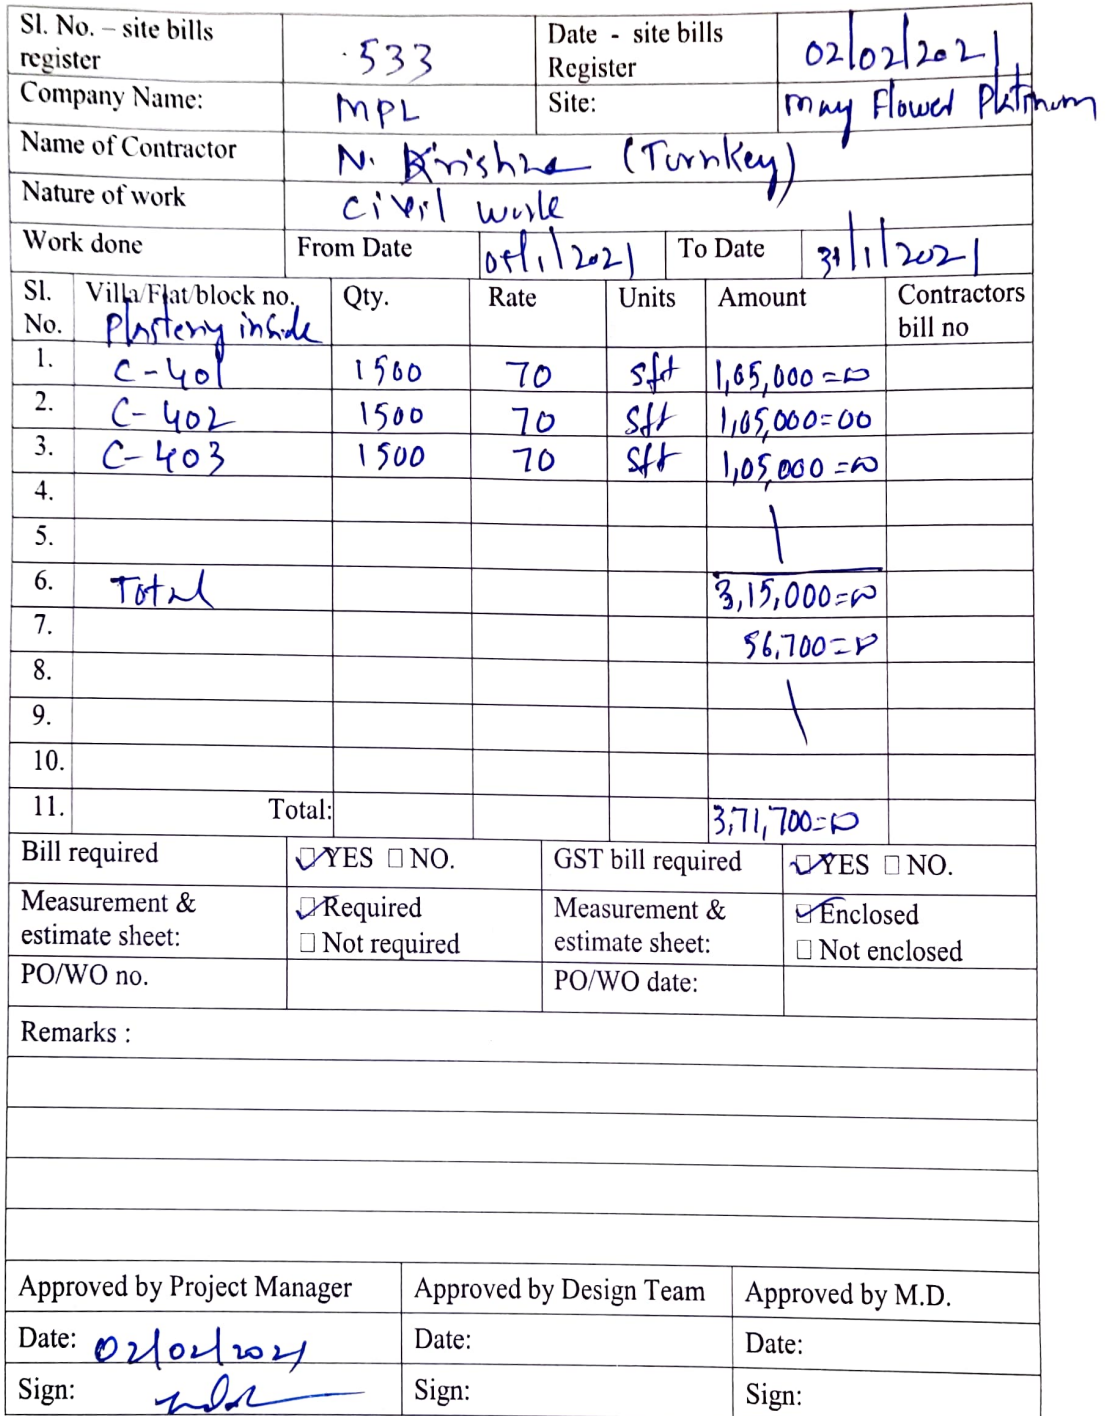 Sl. No. – site bills register 533 Date - site bills Register 02/02/2021
Company Name: MPL Site: May Flower Platinum
Name of Contractor N. Krishna (Turnkey)
Nature of work Civil work
Work done From Date /1/2021 To Date 31/1/2021
Sl. No. Villa/Flat/block no. Qty. Rate Units Amount Contractors bill no
Plastering inside
1. C-401 1500 70 sft 1,05,000=00
2. C-402 1500 70 sft 1,05,000=00
3. C-403 1500 70 sft 1,05,000=00
4.
5.
6. Total 3,15,000=00
7. 56,700=00
8.
9.
10.
11. Total: 3,71,700=00
Bill required YES NO. GST bill required YES NO.
Measurement & estimate sheet: Required Not required Measurement & estimate sheet: Enclosed Not enclosed
PO/WO no. PO/WO date:
Remarks :
Approved by Project Manager Approved by Design Team Approved by M.D.
Date: 02/02/2021 Date: Date:
Sign: Sign: Sign: